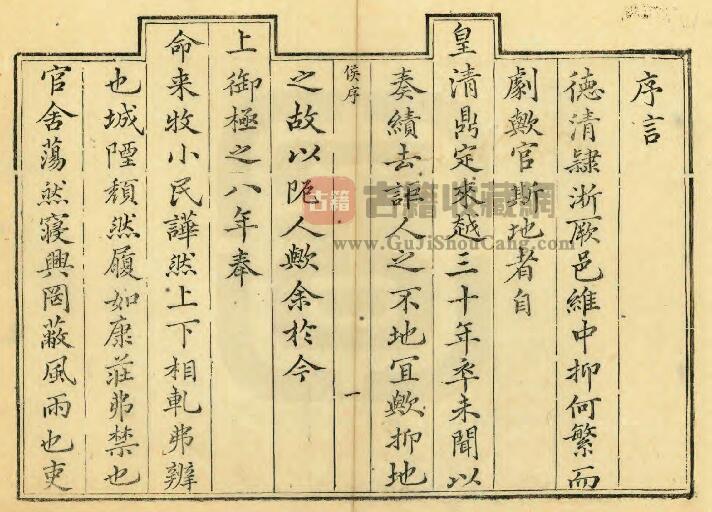 序言
德清隸浙厥邑維中抑何繁而
劇歟官斯地者自
皇清鼎定來越三十年率未聞以
奏績去詎人之不地宜歟抑地
侯序
一
之故以阨人歟余於今
上御極之八年奉
命来牧小民譁然上下相軋弗辨
也城陻頽然履如康莊弗禁也
官舍蕩然寢興罔蔽風雨也吏
古籍
古籍收藏網
www.GuJiShouCang.com